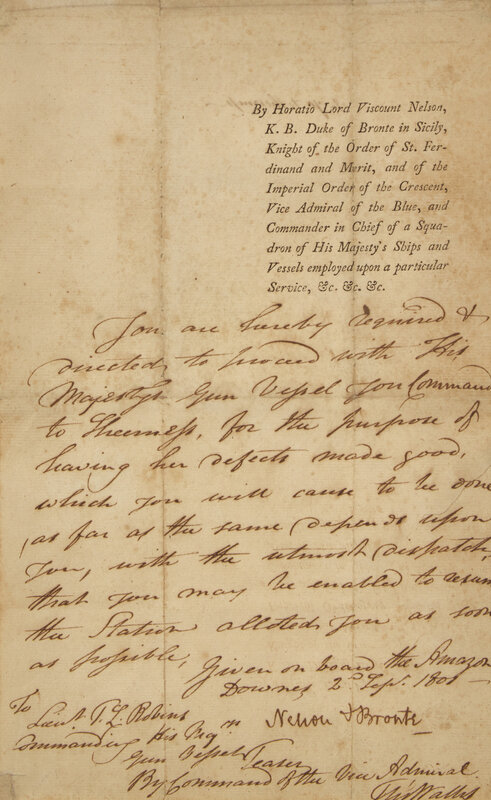 By Horatio Lord Viscount Nelson,
K. B. Duke of Bronte in Sicily,
Knight of the Order of St. Fer-
dinand and Merit, and of the
Imperial Order of the Crescent,
Vice Admiral of the Blue, and
Commander in Chief of a Squa-
dron of His Majesty's Ships and
Vessels employed upon a particular
Service, &c. &c. &c.
You are hereby required &
directed to proceed with His
Majestys Gun Vessel you Command
to Sheerness, for the purpose of
having her defects made good,
which you will cause to be done
, as far as the same depends upon
you, with the utmost dispatch,
that you may be enabled to resume
the Station alloted you as soon
as possible,
Given on board the Amazon
Downes 2d Sepr. 1801
Nelson & Bronte
To
Lieut T. L. Robins
Commanding His Maj
Gun Vessel Teaser
By Command of the Vice Admiral
Wallis